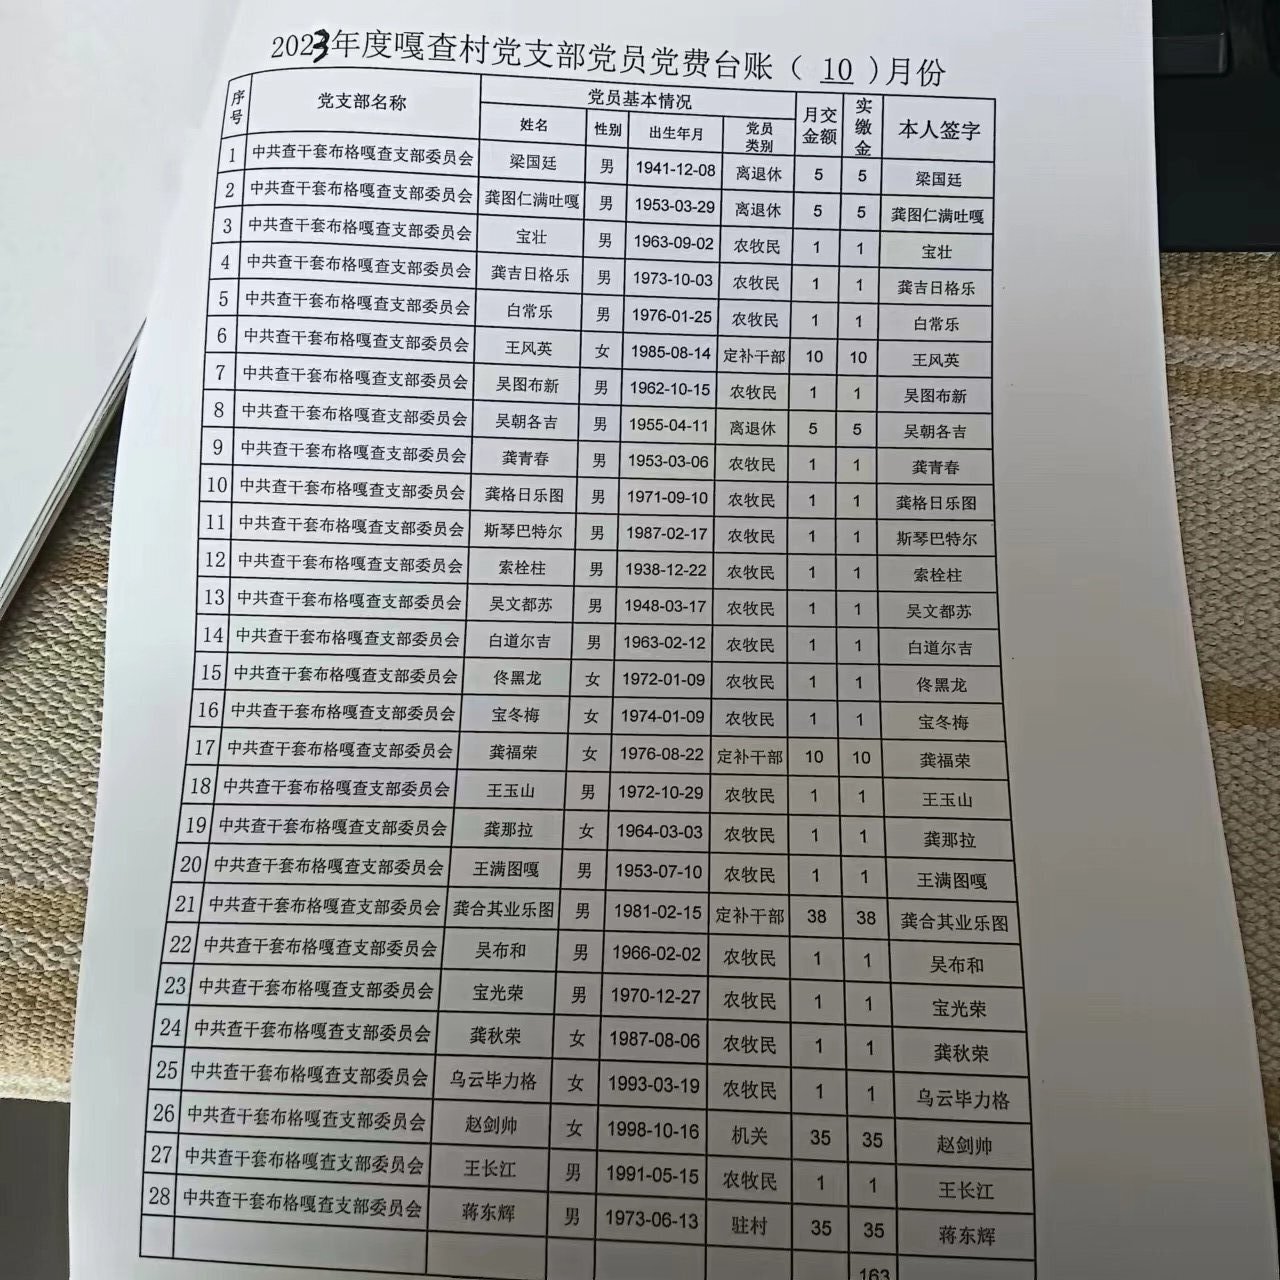 2023年度嘎查村党支部党员党费台账（ 10 ）月份
序号 党支部名称 党员基本情况 月交金额 实缴金 本人签字
姓名 性别 出生年月 党员类别
1 中共查干套布格嘎查支部委员会 梁国廷 男 1941-12-08 离退休 5 5 梁国廷
2 中共查干套布格嘎查支部委员会 龚图仁满吐嘎 男 1953-03-29 离退休 5 5 龚图仁满吐嘎
3 中共查干套布格嘎查支部委员会 宝壮 男 1963-09-02 农牧民 1 1 宝壮
4 中共查干套布格嘎查支部委员会 龚吉日格乐 男 1973-10-03 农牧民 1 1 龚吉日格乐
5 中共查干套布格嘎查支部委员会 白常乐 男 1976-01-25 农牧民 1 1 白常乐
6 中共查干套布格嘎查支部委员会 王风英 女 1985-08-14 定补干部 10 10 王风英
7 中共查干套布格嘎查支部委员会 吴图布新 男 1962-10-15 农牧民 1 1 吴图布新
8 中共查干套布格嘎查支部委员会 吴朝各吉 男 1955-04-11 离退休 5 5 吴朝各吉
9 中共查干套布格嘎查支部委员会 龚青春 男 1953-03-06 农牧民 1 1 龚青春
10 中共查干套布格嘎查支部委员会 龚格日乐图 男 1971-09-10 农牧民 1 1 龚格日乐图
11 中共查干套布格嘎查支部委员会 斯琴巴特尔 男 1987-02-17 农牧民 1 1 斯琴巴特尔
12 中共查干套布格嘎查支部委员会 索栓柱 男 1938-12-22 农牧民 1 1 索栓柱
13 中共查干套布格嘎查支部委员会 吴文都苏 男 1948-03-17 农牧民 1 1 吴文都苏
14 中共查干套布格嘎查支部委员会 白道尔吉 男 1963-02-12 农牧民 1 1 白道尔吉
15 中共查干套布格嘎查支部委员会 佟黑龙 女 1972-01-09 农牧民 1 1 佟黑龙
16 中共查干套布格嘎查支部委员会 宝冬梅 女 1974-01-09 农牧民 1 1 宝冬梅
17 中共查干套布格嘎查支部委员会 龚福荣 女 1976-08-22 定补干部 10 10 龚福荣
18 中共查干套布格嘎查支部委员会 王玉山 男 1972-10-29 农牧民 1 1 王玉山
19 中共查干套布格嘎查支部委员会 龚那拉 女 1964-03-03 农牧民 1 1 龚那拉
20 中共查干套布格嘎查支部委员会 王满图嘎 男 1953-07-10 农牧民 1 1 王满图嘎
21 中共查干套布格嘎查支部委员会 龚合其业乐图 男 1981-02-15 定补干部 38 38 龚合其业乐图
22 中共查干套布格嘎查支部委员会 吴布和 男 1966-02-02 农牧民 1 1 吴布和
23 中共查干套布格嘎查支部委员会 宝光荣 男 1970-12-27 农牧民 1 1 宝光荣
24 中共查干套布格嘎查支部委员会 龚秋荣 女 1987-08-06 农牧民 1 1 龚秋荣
25 中共查干套布格嘎查支部委员会 乌云毕力格 女 1993-03-19 农牧民 1 1 乌云毕力格
26 中共查干套布格嘎查支部委员会 赵剑帅 女 1998-10-16 机关 35 35 赵剑帅
27 中共查干套布格嘎查支部委员会 王长江 男 1991-05-15 农牧民 1 1 王长江
28 中共查干套布格嘎查支部委员会 蒋东辉 男 1973-06-13 驻村 35 35 蒋东辉
163